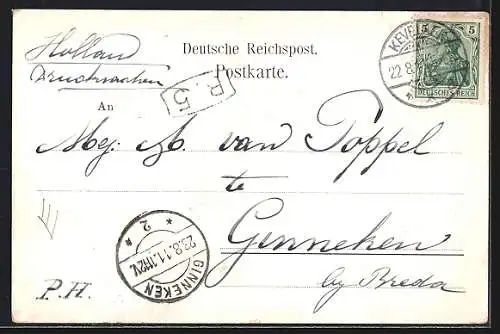 Hollan
Drucksachen
Deutsche Reichspost.
Postkarte.
KEVELAER
22.8.
5 5
DEUTSCHES REICH
R. 5
An
Mej. M. van Poppel
te
Ginneken
by Breda
* 2 *
23.8.11.11-12V.
GINNEKEN
P.H.